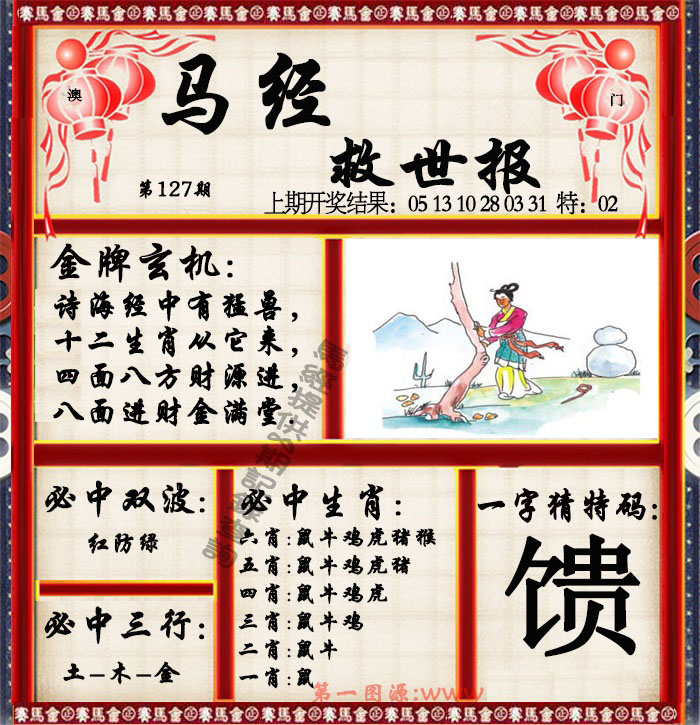 賽馬會正金賽馬會正金賽馬會正金賽馬會正金賽馬會正金賽馬會
澳
门
马经
救世报
第127期
上期开奖结果：05 13 10 28 03 31 特：02
金牌玄机：
诗海经中有猛兽，
十二生肖从它来，
四面八方财源进，
八面进财金满堂．
必中双波：
红防绿
必中三行：
土-木-金
必中生肖：
六肖:鼠牛鸡虎猪猴
五肖:鼠牛鸡虎猪
四肖:鼠牛鸡虎
三肖:鼠牛鸡
二肖:鼠牛
一肖:鼠
一字猜特码：
馈
第一图源:www